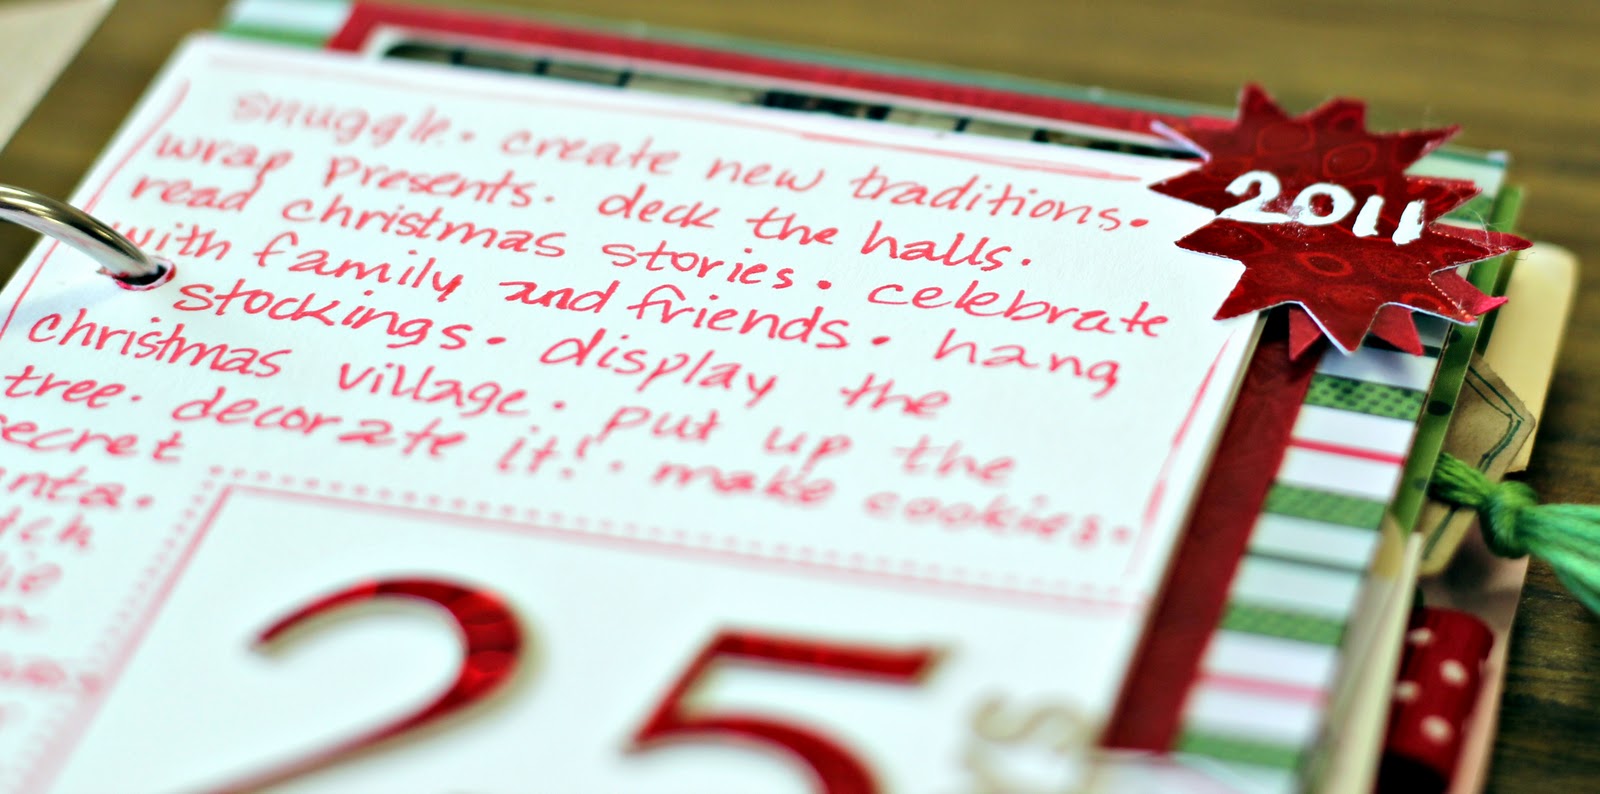 snuggle. create new traditions.
wrap presents. deck the halls.
read christmas stories. celebrate
with family and friends. hang
stockings. display the
christmas village. put up the
tree. decorate it!. make cookies.
secret
2011
25